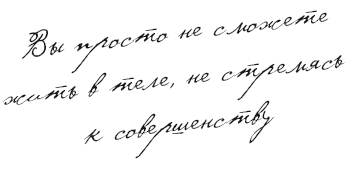 Вы просто не сможете
жить в теле, не стремясь
к совершенству